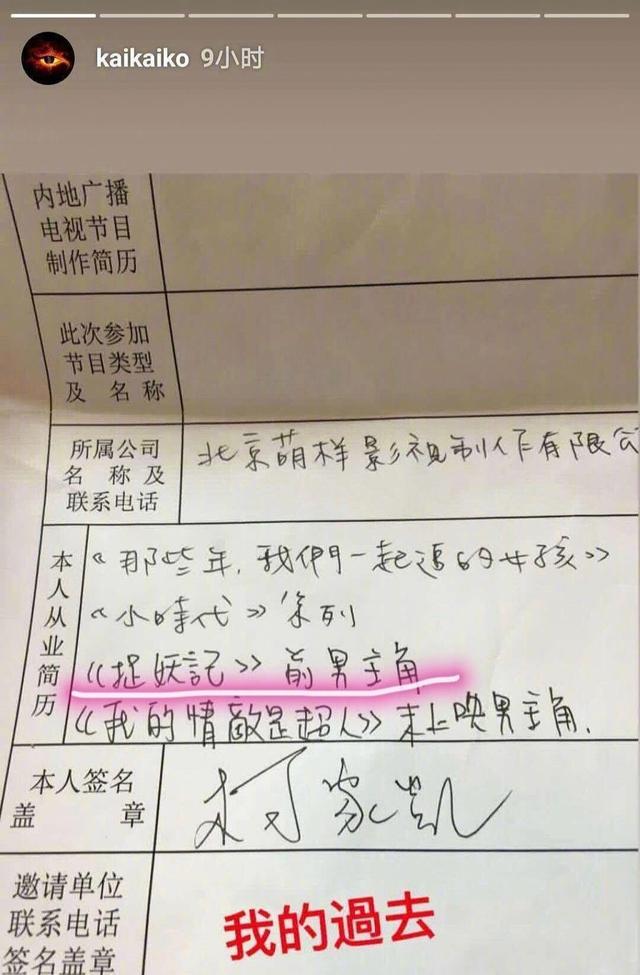 kaikaiko 9小时
内地广播
电视节目
制作简历
此次参加
节目类型
及 名 称
所属公司
名 称 及
联系电话
北京萌样影视制作有限公
本人从业简历
《那些年,我們一起追的女孩》
《小時代》系列
《捉妖記》前男主角
《我的情敵是超人》未上映男主角.
本人签名
盖 章
柯家凱
邀请单位
联系电话
签名盖章
我的過去